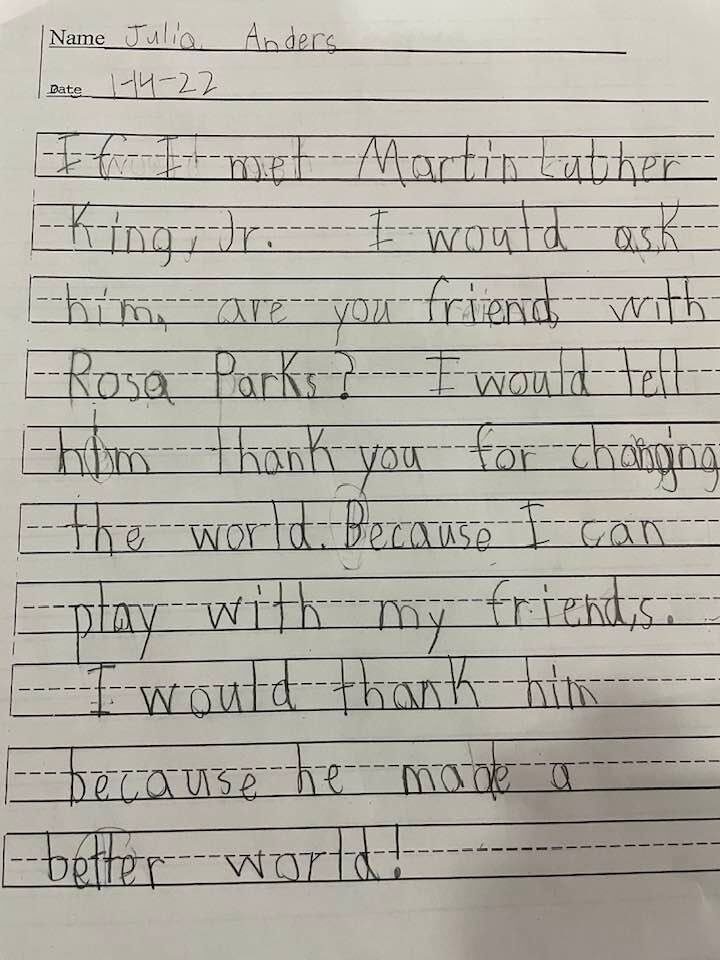 Name Julia Anders
Date 1-14-22
If I met Martin Luther
King, Jr. I would ask
him, are you friend with
Rosa Parks? I would tell
him thank you for changing
the world. Because I can
play with my friends.
I would thank him
because he made a
better world!